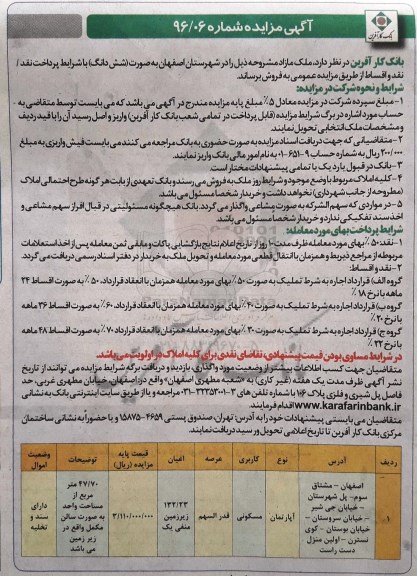 آگهی مزایده شماره ۹۶/۰۶
بانک کارآفرین
بانک کارآفرین در نظر دارد، ملک مازاد مشروحه ذیل را در شهرستان اصفهان به صورت (شش دانگ) با شرایط پرداخت نقد /
نقد و اقساط از طریق مزایده عمومی به فروش برساند.
شرایط و نحوه شرکت در مزایده:
۱- مبلغ سپرده شرکت در مزایده معادل ۵٪ مبلغ پایه مزایده مندرج در آگهی می باشد که می بایست توسط متقاضی به
حساب مورد اشاره در برگ شرایط مزایده (قابل پرداخت در تمامی شعب بانک کارآفرین) واریز و اصل رسید آن را با قید ردیف
و مشخصات ملک انتخابی تحویل نمایند.
۲- متقاضیانی که جهت دریافت اسناد مزایده به صورت حضوری به بانک مراجعه می کنند می بایست فیش واریزی به مبلغ
۲۰۰/۰۰۰ ریال به شماره حساب ۹-۶۵۱-۰۱ به نام امور مالی بانک واریز نمایند.
۳- بانک در قبول یا رد یک یا تمامی پیشنهادات مختار است.
۴- کلیه املاک مربوط با وضع موجود و شرایط روز ملک به فروش می رسند و بانک تعهدی از بابت هر گونه طرح احتمالی املاک
(مطروحه از جانب شهرداری) نخواهد داشت و خریدار شخصاً مسئول می باشد.
۵- در مواردی که سهم الشرکه به صورت مشاعی واگذار می گردد، بانک هیچگونه مسئولیتی در قبال افراز سهم مشاعی و
اخذ سند تفکیکی ندارد و خریدار شخصاً مسئول می باشد.
شرایط پرداخت بهای مورد معامله:
۱- نقد: ۵۰٪ بهای مورد معامله ظرف مدت ۱۰ روز از تاریخ اعلام نتایج بازگشایی پاکات و مابقی ثمن معامله پس از اخذ استعلامات
مربوطه از مراجع ذیربط و همزمان با انتقال قطعی مورد معامله و تحویل ملک به خریدار در دفتر اسناد رسمی دریافت می گردد.
۲- نقد و اقساط:
گروه الف) قرارداد اجاره به شرط تملیک به صورت ۵۰٪ بهای مورد معامله همزمان با انعقاد قرارداد، ۵۰٪ به صورت اقساط ۲۴
ماهه با نرخ ۱۸٪
گروه ب) قرارداد اجاره به شرط تملیک به صورت ۴۰٪ بهای مورد معامله همزمان با انعقاد قرارداد، ۶۰٪ به صورت اقساط ۳۶ ماهه
با نرخ ۲۰٪
گروه ج) قرارداد اجاره به شرط تملیک به صورت ۳۰٪ بهای مورد معامله همزمان با انعقاد قرارداد، ۷۰٪ به صورت اقساط ۴۸ ماهه
با نرخ ۲۲٪
در شرایط مساوی بودن قیمت پیشنهادی، تقاضای نقدی برای کلیه املاک در اولویت می باشد.
متقاضیان جهت کسب اطلاعات بیشتر از وضعیت مورد واگذاری، بازدید و دریافت برگه شرایط مزایده می توانند از تاریخ
نشر آگهی ظرف مدت یک هفته (غیر کاری) به «شعبه مطهری اصفهان» واقع در: اصفهان، خیابان مطهری غربی، حد
فاصل پل شیری و فلزی پلاک ۱۶۶ با شماره تلفن های ۳-۳۲۳۵۳۰۰۱-۰۳۱ مراجعه و یا از طریق سایت اینترنتی بانک به نشانی
www.karafarinbank.ir اقدام فرمایند.
متقاضیان می بایستی پیشنهادات خود را به آدرس: تهران، صندوق پستی ۴۶۵۹-۱۵۸۷۵ و یا حضوراً به نشانی ساختمان
مرکزی بانک کارآفرین تا تاریخ اعلامی تحویل و رسید دریافت نمایند.
ردیف آدرس نوع کاربری عرصه اعیان قیمت پایه مزایده (ریال) توضیحات وضعیت اموال
۱ اصفهان – مشتاق سوم – پل شهرستان – خیابان جی شیر – خیابان سروستان – خیابان بوستان – کوی نسترن – اولین منزل دست راست
آپارتمان مسکونی قدر السهم ۱۳۳/۲۳ زیرزمین منفی یک ۳/۱۱۰/۰۰۰/۰۰۰
۴۷/۷۰ متر مربع از مساحت واحد به صورت سالن مکمل واقع در زیر زمین می باشد
دارای سند و تخلیه